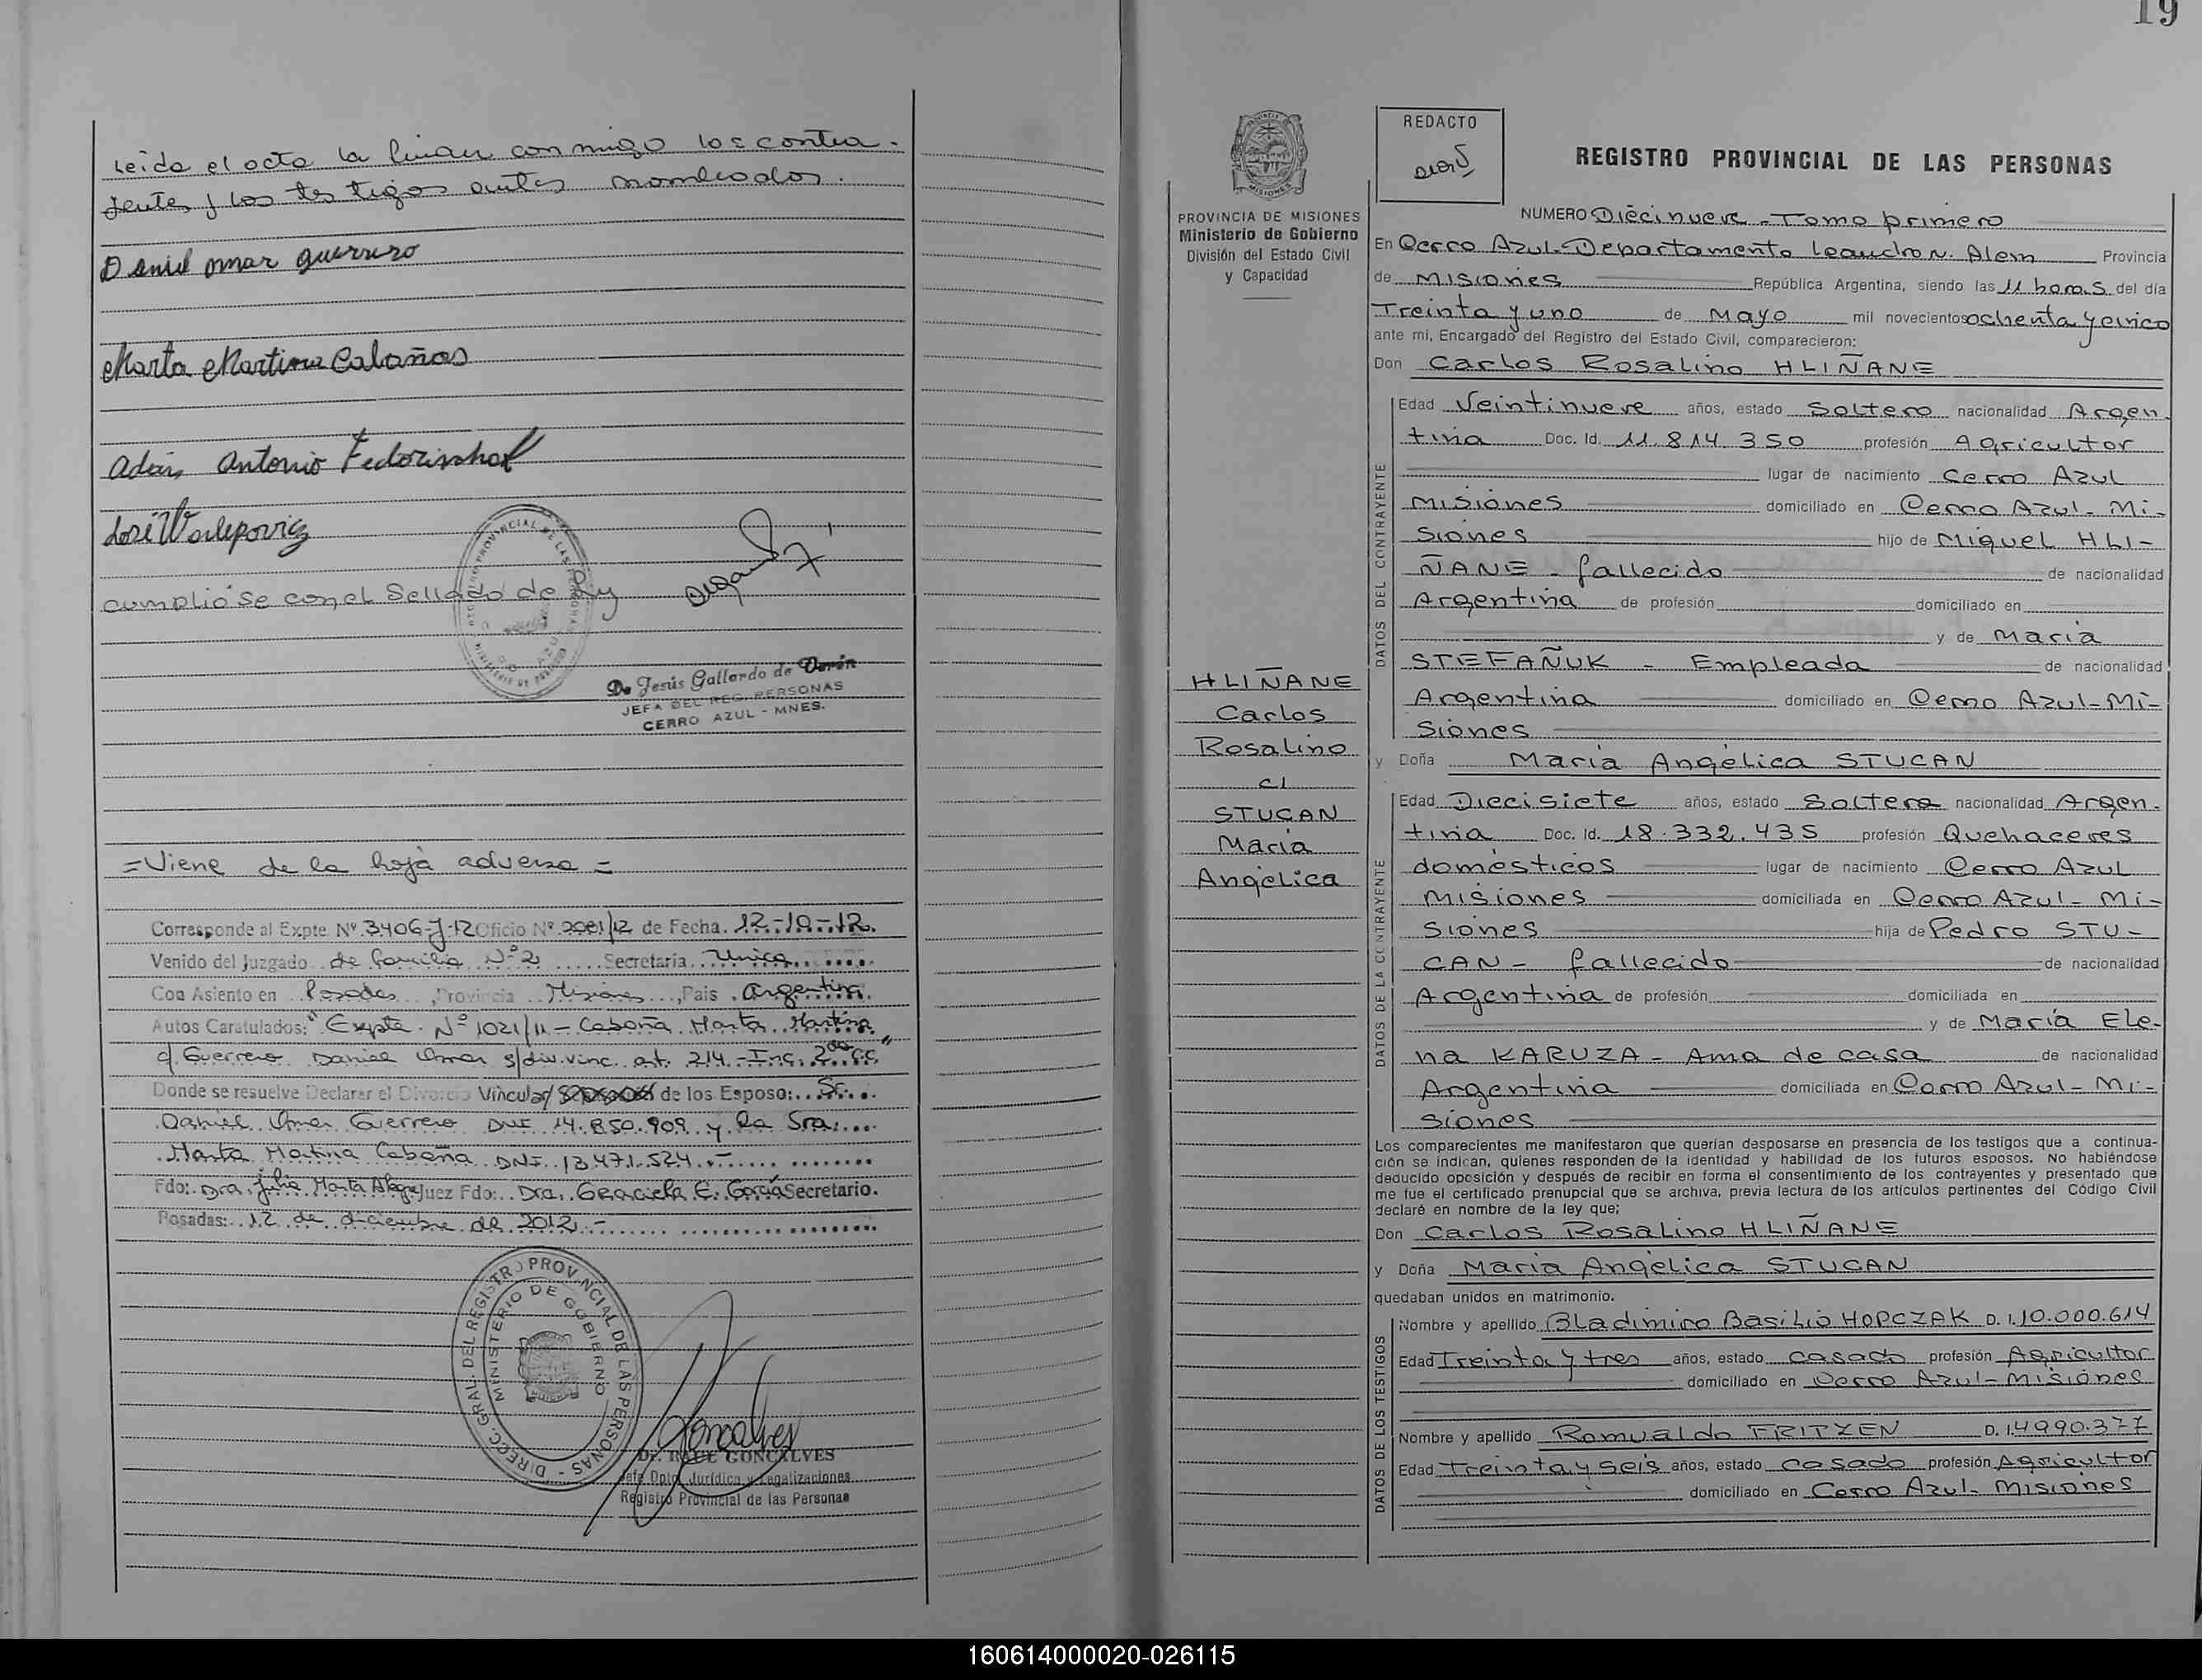 Leida el acta la firman conmigo los contra-
yentes y los testigos antes nombrados.
Daniel Omar Guerrero
Marta Martina Cabañas
Antonio
José
cumplióse con el Sellado de Ley
De Jesús Gallardo de
JEFA DEL REG. PERSONAS
CERRO AZUL - MNES.
= Viene de la hoja adversa =
Corresponde al Expte. Nº 3406-J-12 Oficio Nº 2981/12 de Fecha. 12-10-12.
Venido del Juzgado de familia Nº 2 Secretaría Unica
Con Asiento en Posadas, Provincia Misiones, Pais Argentina.
Autos Caratulados: "Expte. Nº 1021/11 - Cabaña Marta Martina
c/ Guerrero Daniel Omar s/div. vinc. art. 214 - Inc. 2do CC"
Donde se resuelve Declarar el Divorcio Vincular de los Esposo: Sr.
Daniel Omar Guerrero DNI 14.850.909 y la Sra.
Marta Martina Cabaña DNI. 13.471.524.-
Fdo: Dra. Julia Marta Juez Fdo: Dra. Graciela E. García Secretario.
Posadas: 12 de diciembre de 2012.-
DIRECC. GRAL. DEL REGISTRO PROVINCIAL DE LAS PERSONAS
MINISTERIO DE GOBIERNO
Goncalves
Dr. RAUL GONCALVES
Jefe Dpto. Jurídico y Legalizaciones
Registro Provincial de las Personas
19
PROVINCIA DE MISIONES
Ministerio de Gobierno
División del Estado Civil
y Capacidad
HLIÑANE
Carlos
Rosalino
c/
STUCAN
María
Angélica
REDACTO
REGISTRO PROVINCIAL DE LAS PERSONAS
NUMERO Diecinueve - Tomo primero
En Cerro Azul - Departamento Leandro N. Alem Provincia
de Misiones República Argentina, siendo las 11 horas del día
Treinta y uno de Mayo mil novecientos ochenta y cinco
ante mi, Encargado del Registro del Estado Civil, comparecieron:
Don Carlos Rosalino HLIÑANE
DATOS DEL CONTRAYENTE
Edad Veintinueve años, estado Soltero nacionalidad Argen-
tina Doc. Id. 11.814.350 profesión Agricultor
lugar de nacimiento Cerro Azul
Misiones domiciliado en Cerro Azul - Mi-
siones hijo de Miguel HLI-
ÑANE - fallecido de nacionalidad
Argentina de profesión domiciliado en
y de María
STEFAÑUK - Empleada de nacionalidad
Argentina domiciliado en Cerro Azul - Mi-
siones
y Doña María Angélica STUCAN
DATOS DE LA CONTRAYENTE
Edad Diecisiete años, estado Soltera nacionalidad Argen-
tina Doc. Id. 18.332.435 profesión Quehaceres
domésticos lugar de nacimiento Cerro Azul
Misiones domiciliada en Cerro Azul - Mi-
siones hija de Pedro STU-
CAN - fallecido de nacionalidad
Argentina de profesión domiciliada en
y de María Ele-
na KARUZA - Ama de casa de nacionalidad
Argentina domiciliada en Cerro Azul - Mi-
siones
Los comparecientes me manifestaron que querían desposarse en presencia de los testigos que a continua-
ción se indican, quienes responden de la identidad y habilidad de los futuros esposos. No habiéndose
deducido oposición y después de recibir en forma el consentimiento de los contrayentes y presentado que
me fue el certificado prenupcial que se archiva, previa lectura de los artículos pertinentes del Código Civil
declaré en nombre de la ley que;
Don Carlos Rosalino HLIÑANE
y Doña María Angélica STUCAN
quedaban unidos en matrimonio.
DATOS DE LOS TESTIGOS
Nombre y apellido Bladimiro Basilio HOPCZAK D. I. 10.000.614
Edad Treinta y tres años, estado casado profesión Agricultor
domiciliado en Cerro Azul - Misiones
Nombre y apellido Romualdo FRITZEN D. I. 4990.377
Edad Treinta y seis años, estado casado profesión Agricultor
domiciliado en Cerro Azul - Misiones
160614000020-026115